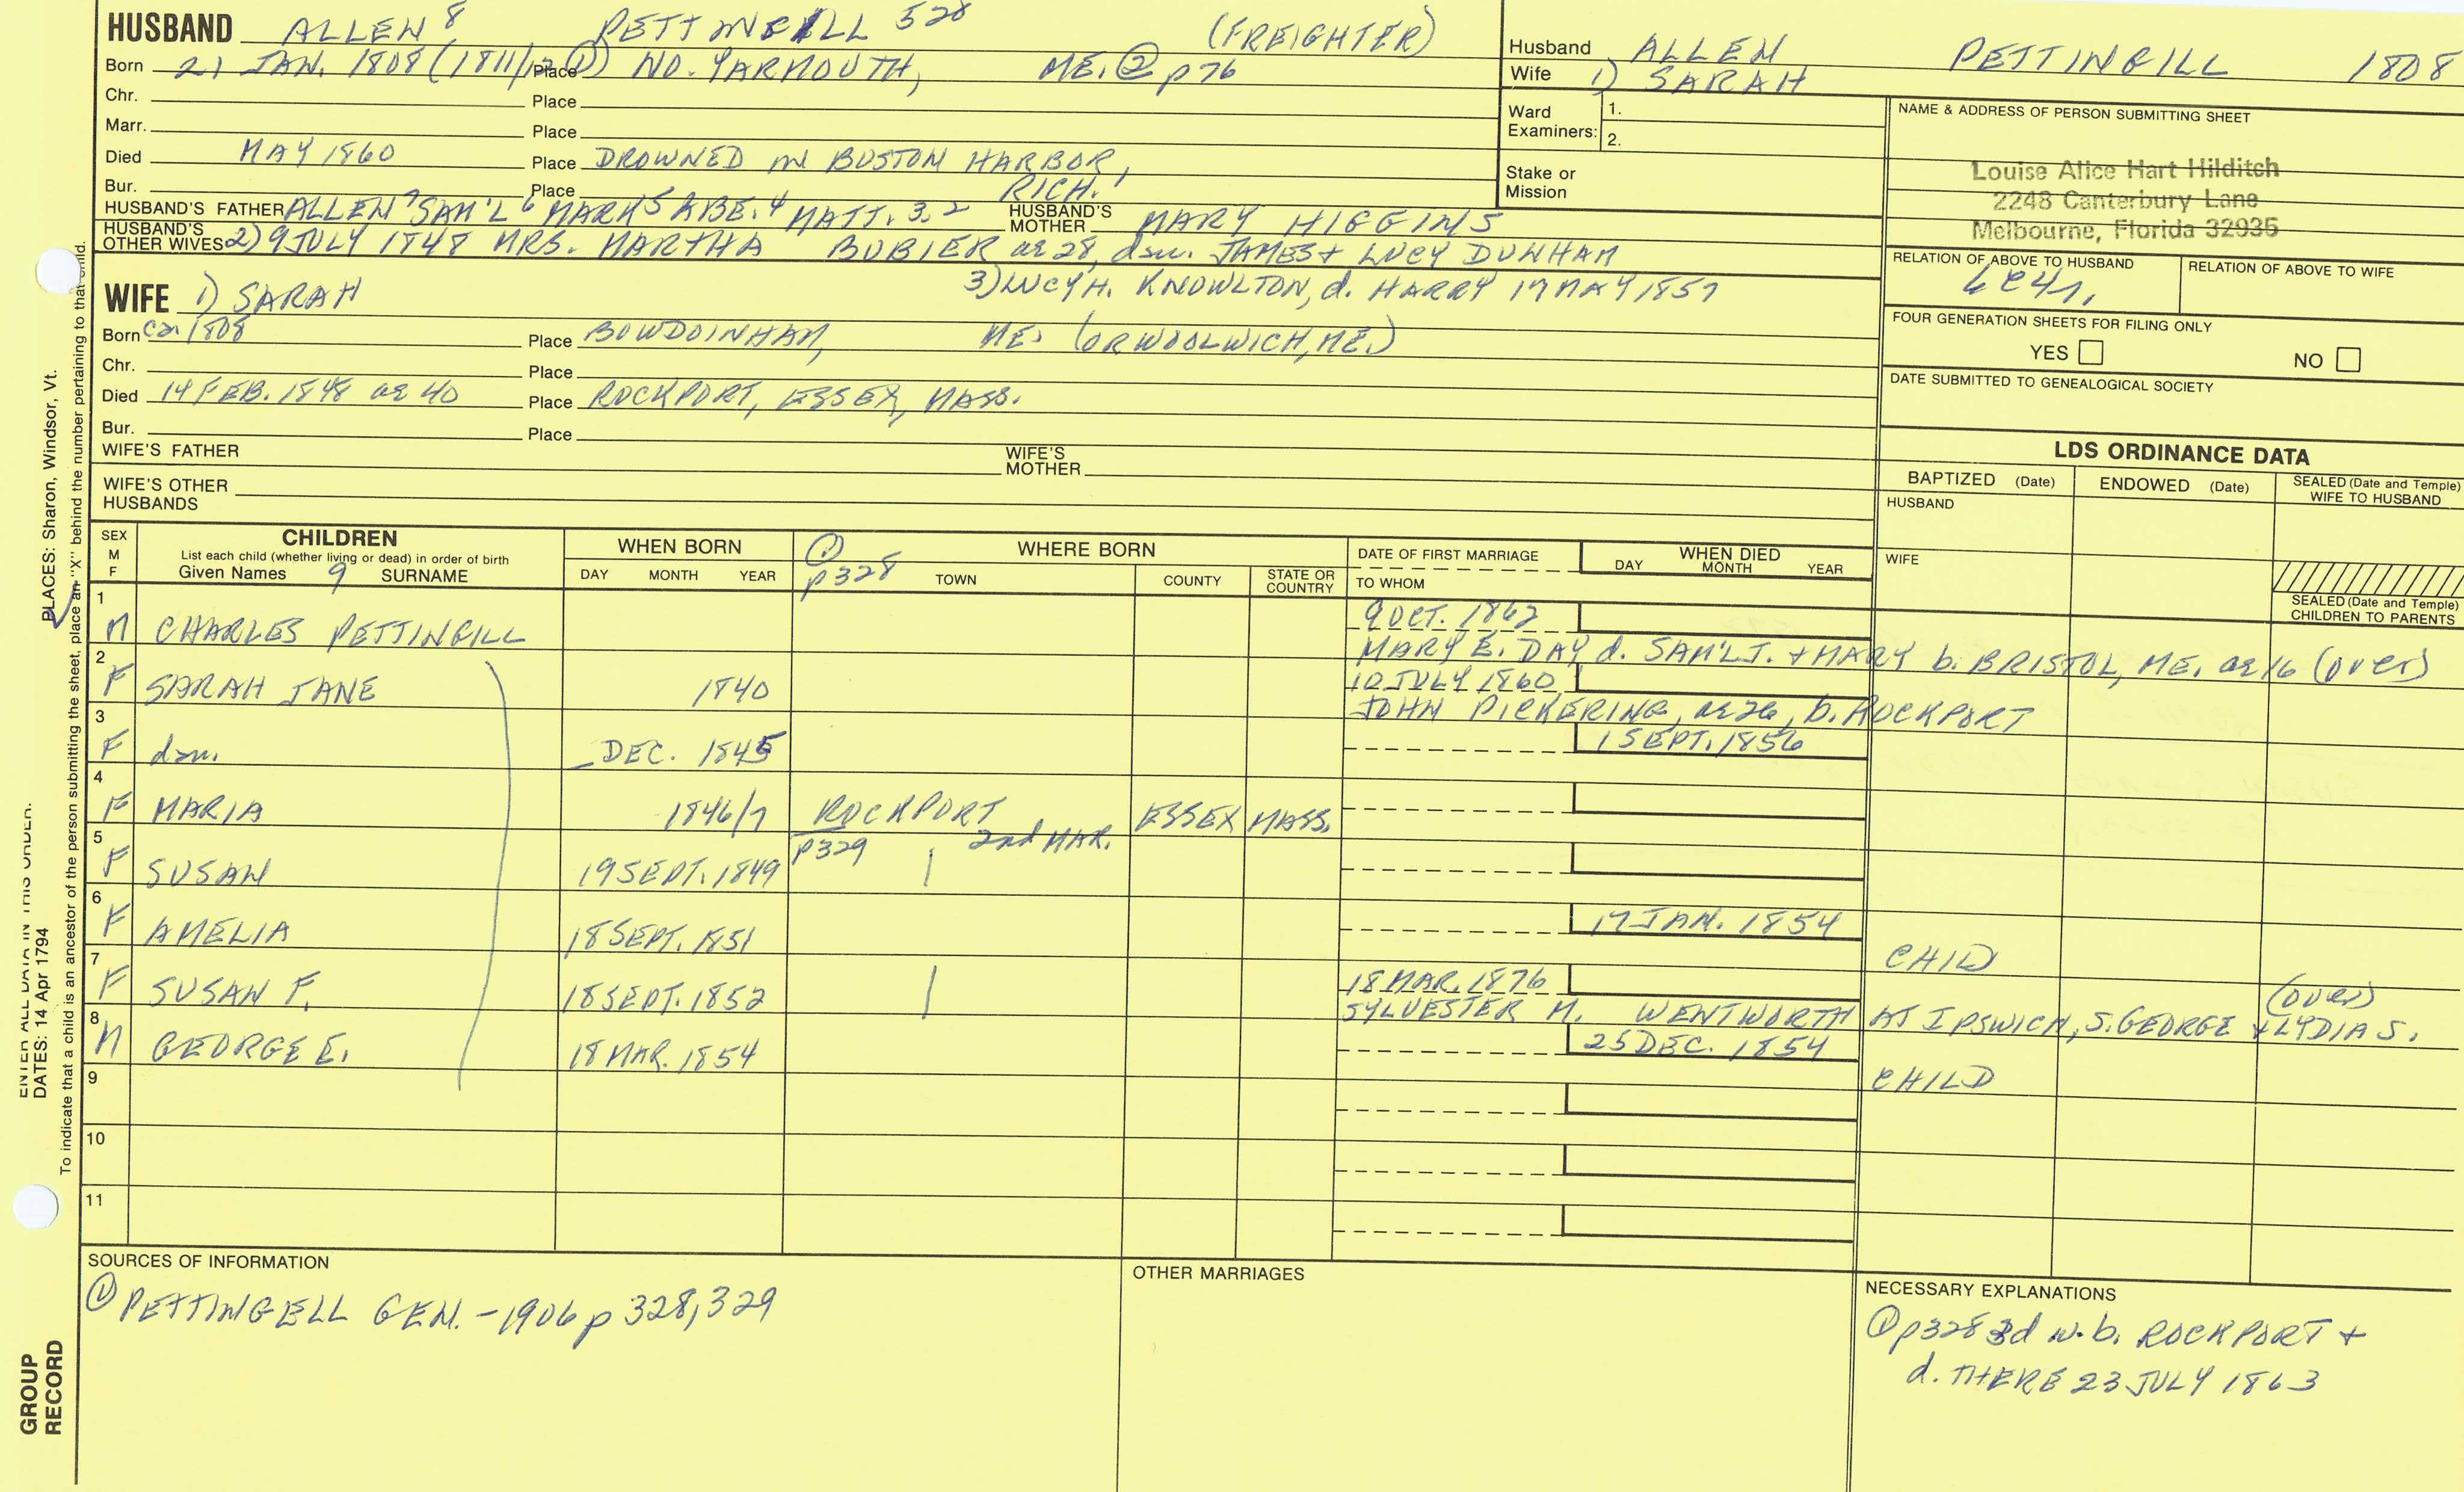 HUSBAND ALLEN 8 PETTINGILL 528 (FREIGHTER)
Born 21 JAN. 1808 (1811/12 ①) Place NO. YARMOUTH, ME. ② p76
Chr. Place
Marr. Place
Died MAY 1860 Place DROWNED IN BOSTON HARBOR,
Bur. Place
RICH.1
HUSBAND'S FATHER ALLEN 7 SAM'L 6 MARK 5 ABE. 4 MATT. 3, 2 HUSBAND'S MOTHER MARY HIGGINS
HUSBAND'S OTHER WIVES 2) 9 JULY 1848 MRS. MARTHA BUBIER ae 28, dau. JAMES + LUCY DUNHAM
3) LUCY H. KNOWLTON, d. HARRY 17 MAY 1857
WIFE 1) SARAH
Born ca. 1808 Place BOWDOINHAM, ME. (OR WOOLWICH, ME.)
Chr. Place
Died 14 FEB. 1848 ae 40 Place ROCKPORT, ESSEX, MASS.
Bur. Place
WIFE'S FATHER WIFE'S MOTHER
WIFE'S OTHER HUSBANDS
Husband ALLEN PETTINGILL 1808
Wife 1) SARAH
Ward Examiners: 1.
2.
Stake or Mission
NAME & ADDRESS OF PERSON SUBMITTING SHEET
Louise Alice Hart Hilditch
2248 Canterbury Lane
Melbourne, Florida 32935
RELATION OF ABOVE TO HUSBAND RELATION OF ABOVE TO WIFE
FOUR GENERATION SHEETS FOR FILING ONLY
YES NO
DATE SUBMITTED TO GENEALOGICAL SOCIETY
LDS ORDINANCE DATA
BAPTIZED (Date) ENDOWED (Date) SEALED (Date and Temple) WIFE TO HUSBAND
HUSBAND
WIFE
SEALED (Date and Temple) CHILDREN TO PARENTS
SEX M F
CHILDREN
List each child (whether living or dead) in order of birth
Given Names 9 SURNAME
WHEN BORN
DAY MONTH YEAR
① p328
WHERE BORN
TOWN COUNTY STATE OR COUNTRY
DATE OF FIRST MARRIAGE
TO WHOM
WHEN DIED
DAY MONTH YEAR
1 M CHARLES PETTINGILL 9 OCT. 1862
MARY E. DAY d. SAM'L J. + MARY b. BRISTOL, ME. ae 16 (over)
2 F SARAH JANE 1840 10 JULY 1860
JOHN PICKERING, ae 26, b. ROCKPORT
3 F dau. DEC. 1845 1 SEPT. 1856
4 F MARIA 1846/7 ROCKPORT ESSEX MASS.
p329 2nd MAR.
5 F SUSAN 19 SEPT. 1849
6 F AMELIA 18 SEPT. 1851 17 JAN. 1854
CHILD
7 F SUSAN F. 18 SEPT. 1852 18 MAR. 1876 (over)
SYLVESTER M. WENTWORTH AT IPSWICH, S. GEORGE + LYDIA S.
8 M GEORGE E. 18 MAR. 1854 25 DEC. 1854
CHILD
9
10
11
SOURCES OF INFORMATION
① PETTINGELL GEN. - 1906 p 328, 329
OTHER MARRIAGES
NECESSARY EXPLANATIONS
① p328 3d w. b. ROCKPORT +
d. THERE 23 JULY 1863
PLACES: Sharon, Windsor, Vt.
ENTER ALL DATA IN THIS ORDER:
DATES: 14 Apr 1794
To indicate that a child is an ancestor of the person submitting the sheet, place an "X" behind the number pertaining to that child.
GROUP RECORD